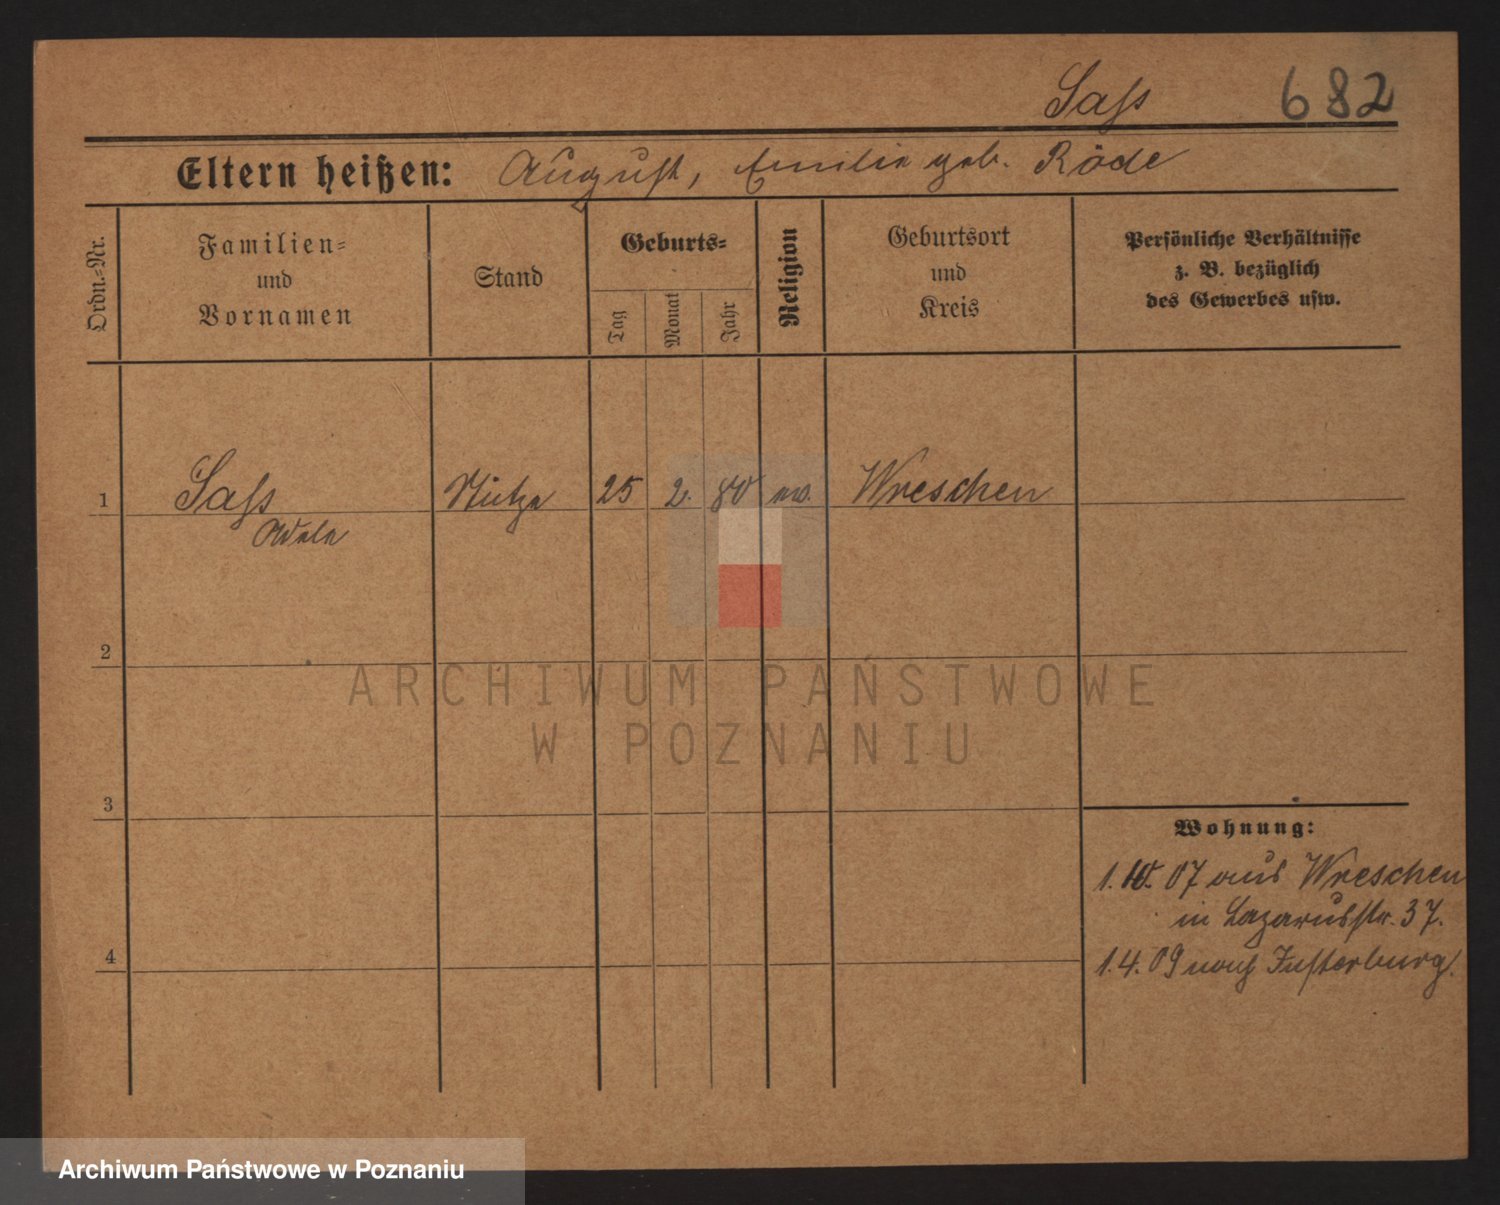 Saß 682
Eltern heißen: August, Emilie geb. Röde
Ordn.-Nr.
Familien-
und
Vornamen
Stand
Geburts-
Tag
Monat
Jahr
Religion
Geburtsort
und
Kreis
Persönliche Verhältnisse
z. B. bezüglich
des Gewerbes usw.
1 Saß Stütze 25 2. 80 ev. Wreschen
Adele
2
ARCHIWUM PAŃSTWOWE
W POZNANIU
3
Wohnung:
1.10.07 aus Wreschen
in Lazarusstr. 37.
4
1.4.09 nach Insterburg.
Archiwum Państwowe w Poznaniu